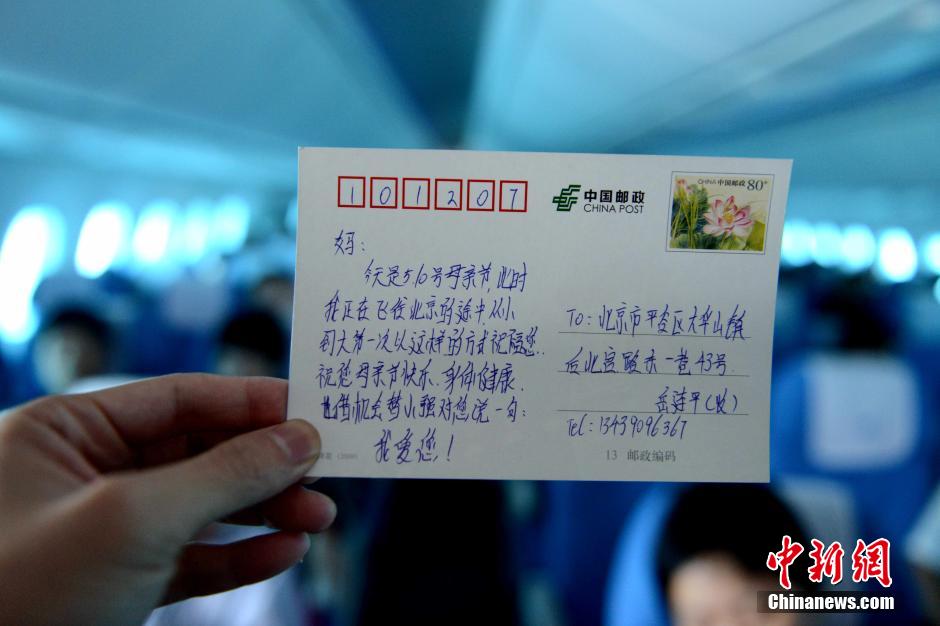 101207
中国邮政
CHINA POST
CHINA 中国邮政 80分
妈：
今天是5.10号母亲节,此时
我正在飞往北京的途中,从小
到大第一次以这样的方式祝福您.
祝您母亲节快乐、身体健康.
也借机会替小强对您说一句：
我爱您！
TO：北京市平谷区大华山镇
后北宫
一巷43号.
平(收)
Tel：13439096367
(2009)
13 邮政编码
中新网
Chinanews.com